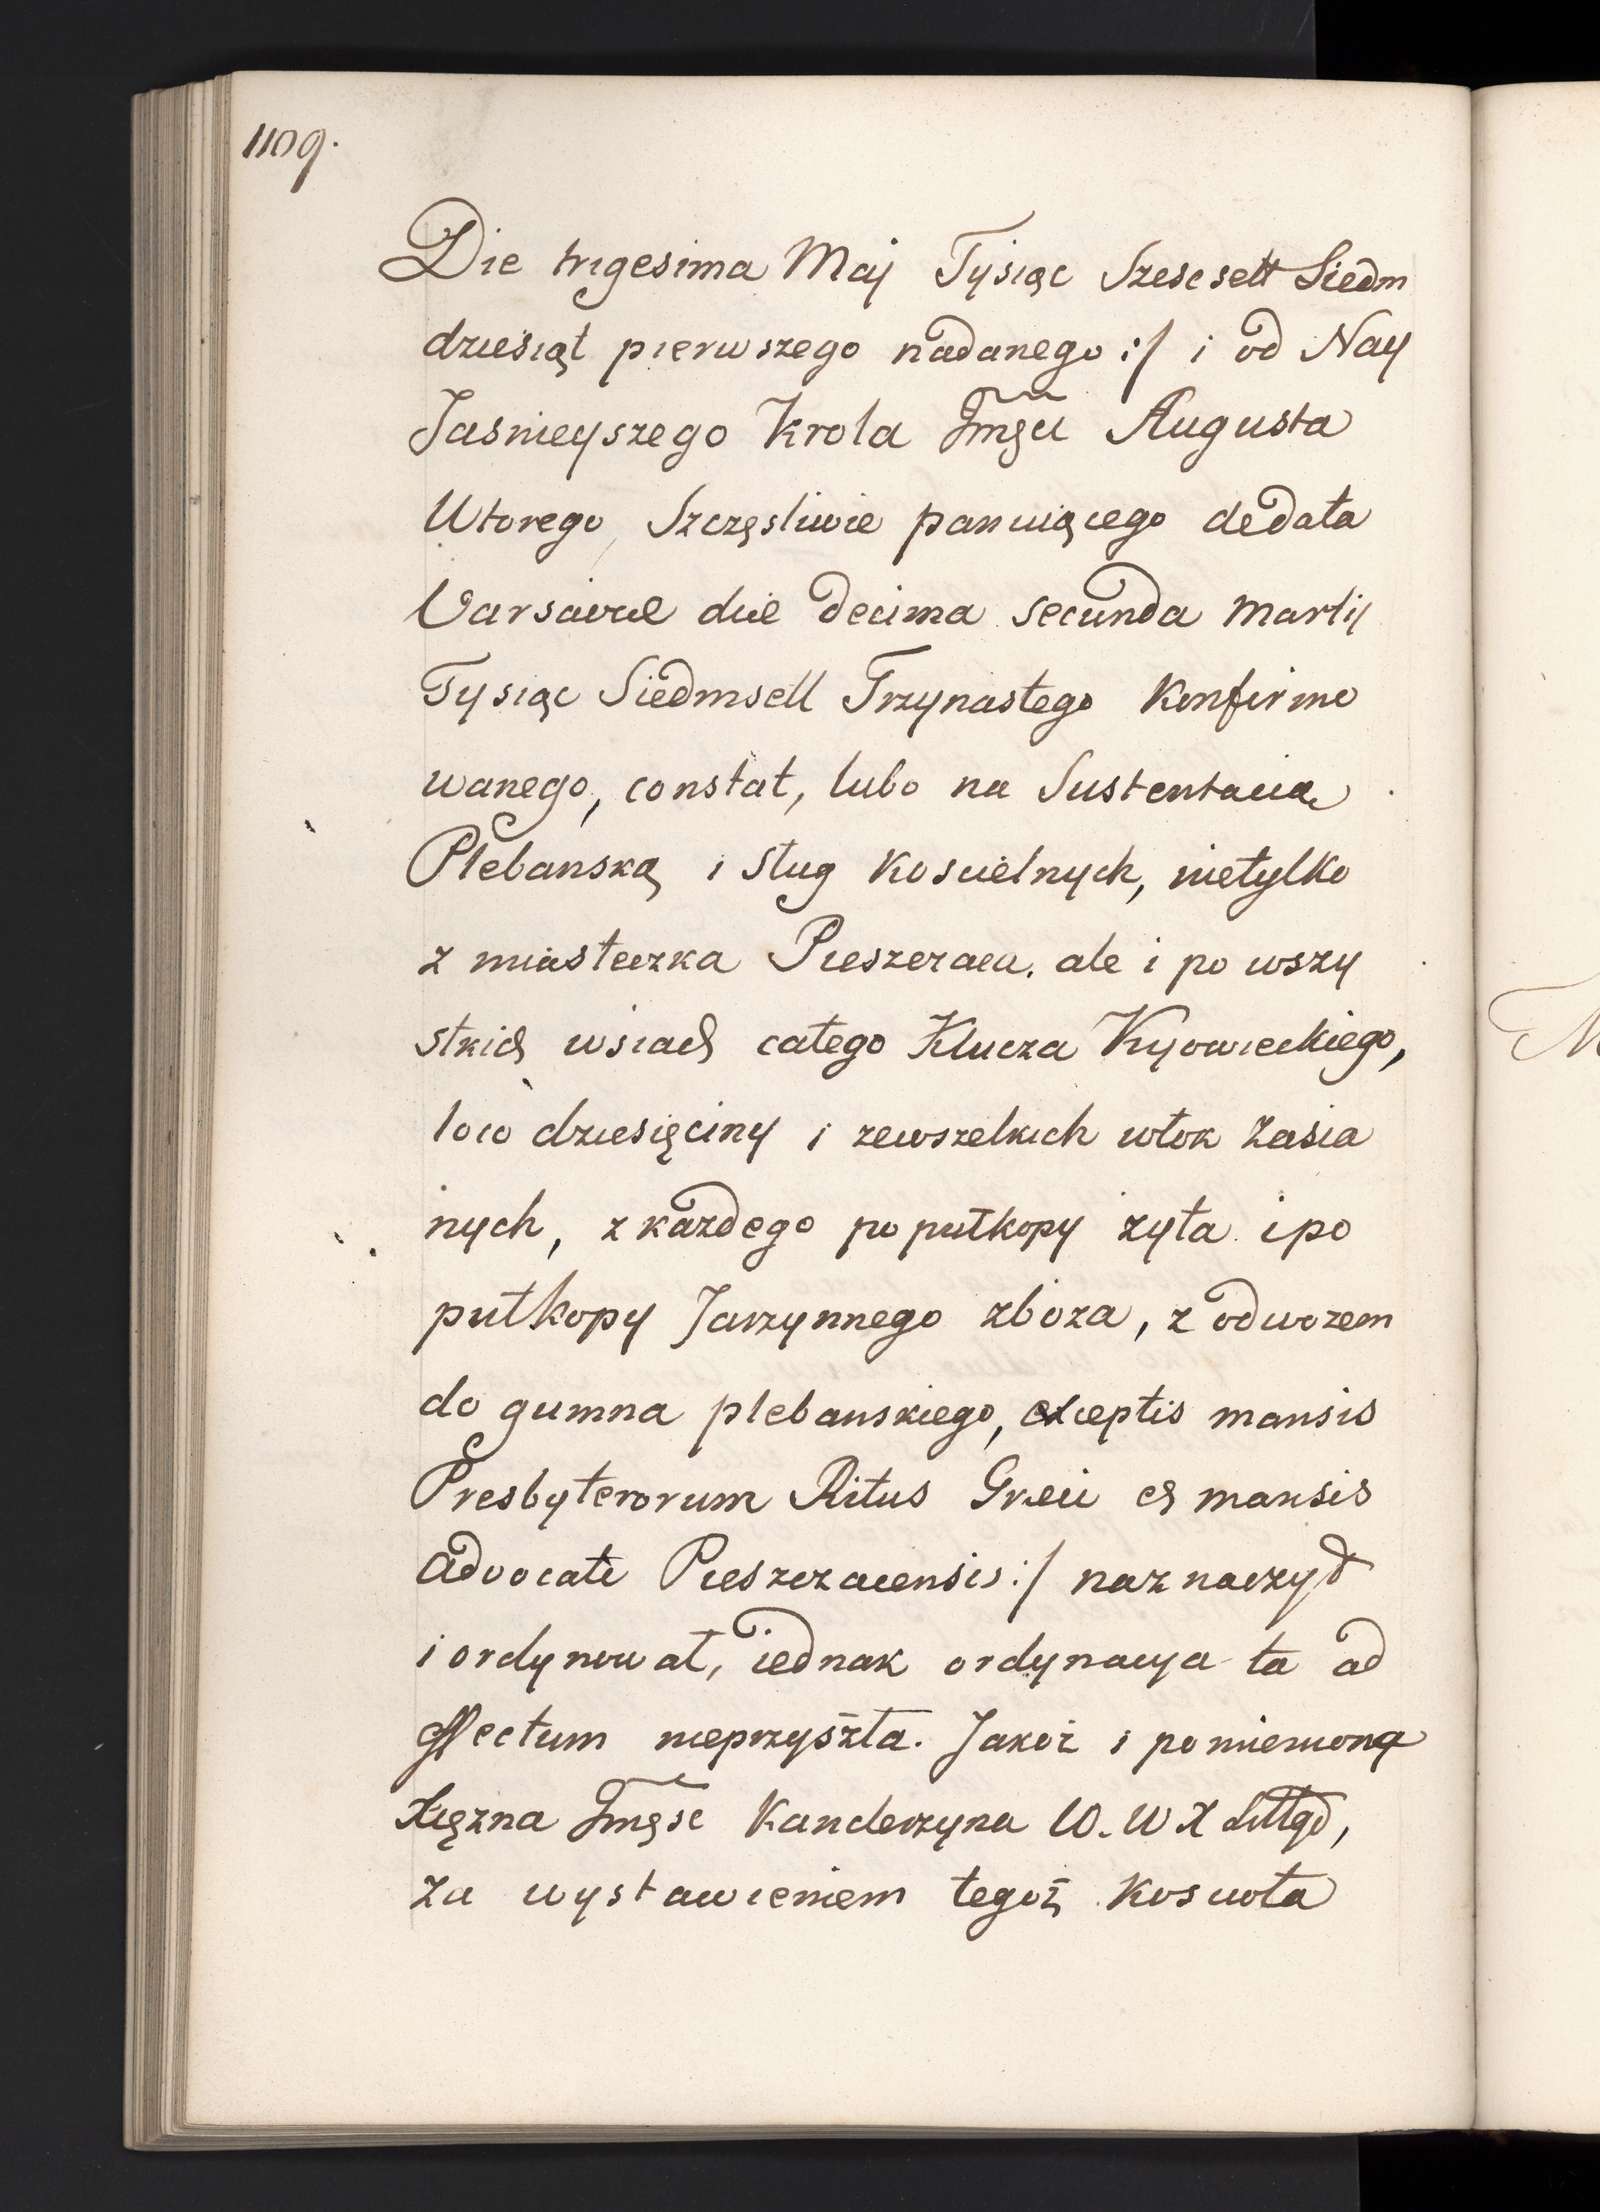 1109.
Die trigesima Maij Tysiąc Szescsett Siedm
dziesiąt pierwszego nadanego :/ i od Nay
Jasnieyszego Krola Jmsci Augusta
Wtorego, Szczęsliwie panuiącego de data
Varsaviae die decima secunda Martij
Tysiąc Siedmsett Trzynastego Konfirmo
wanego, constat, lubo na Sustentacią
Plebanską i sług Koscielnych, nietylko
z miasteczka Pieszczaca. ale i po wszy
stkich wsiach całego Klucza Kijowieckiego,
loco dziesięciny i zewszelkich włok Zasia
nych, z każdego po pułkopy zyta i po
pułkopy Jarzynnego zboza, z odwozem
do gumna plebanskiego, exceptis mansis
Presbyterorum Ritus Graeci et mansis
Advocati Pieszczacensis :/ naznaczył
i ordynował, iednak ordynacya ta ad
effectum nieprzyszła. Jakoż i pomieniona
Xiężna Jmęsc Kanclerzyna W. W X Littgo,
za wystawieniem tegoż Koscioła